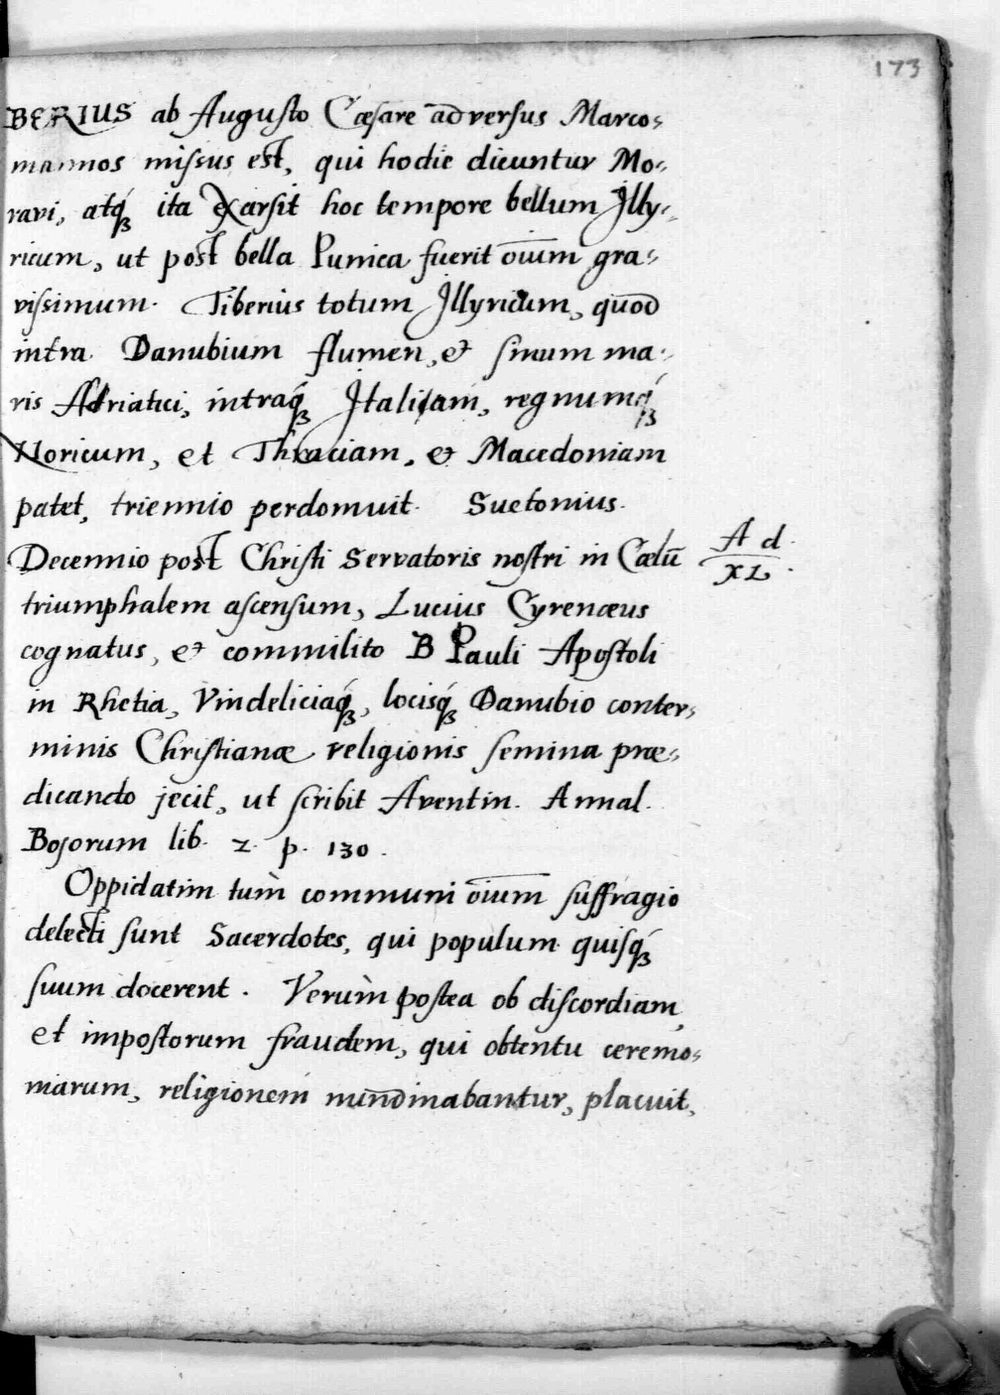 173
BERIUS ab Augusto Cæsare adversus Marco-
mannos missus est, qui hodie dicuntur Mo-
ravi, atq́ꝫ ita exarsit hoc tempore bellum Illy-
ricum, ut post bella Punica fuerit oīum gra-
vissimum. Tiberius totum Illyricum, quod
intra Danubium flumen, et sinum ma-
ris Adriatici, intraq́ꝫ Italiam, regnumq́ꝫ
Noricum, et Thraciam, et Macedoniam
patet, triennio perdomuit. Suetonius.
Decennio post Christi Servatoris nostri in Cælū
A d.
XL.
triumphalem ascensum, Lucius Cyrenæus
cognatus, et commilito B Pauli Apostoli
in Rhetia, Vindeliciaq́ꝫ, locisq́ꝫ Danubio conter-
minis Christianæ religionis semina præ-
dicando jecit, ut scribit Aventin. Annal.
Bojorum lib. 2. p. 130.
Oppidatim tùm communi oīum suffragio
delecti sunt Sacerdotes, qui populum quisq́ꝫ
suum docerent. Verùm postea ob discordiam,
et impostorum fraudem, qui obtentu ceremo-
niarum, religionem nundinabantur, placuit,